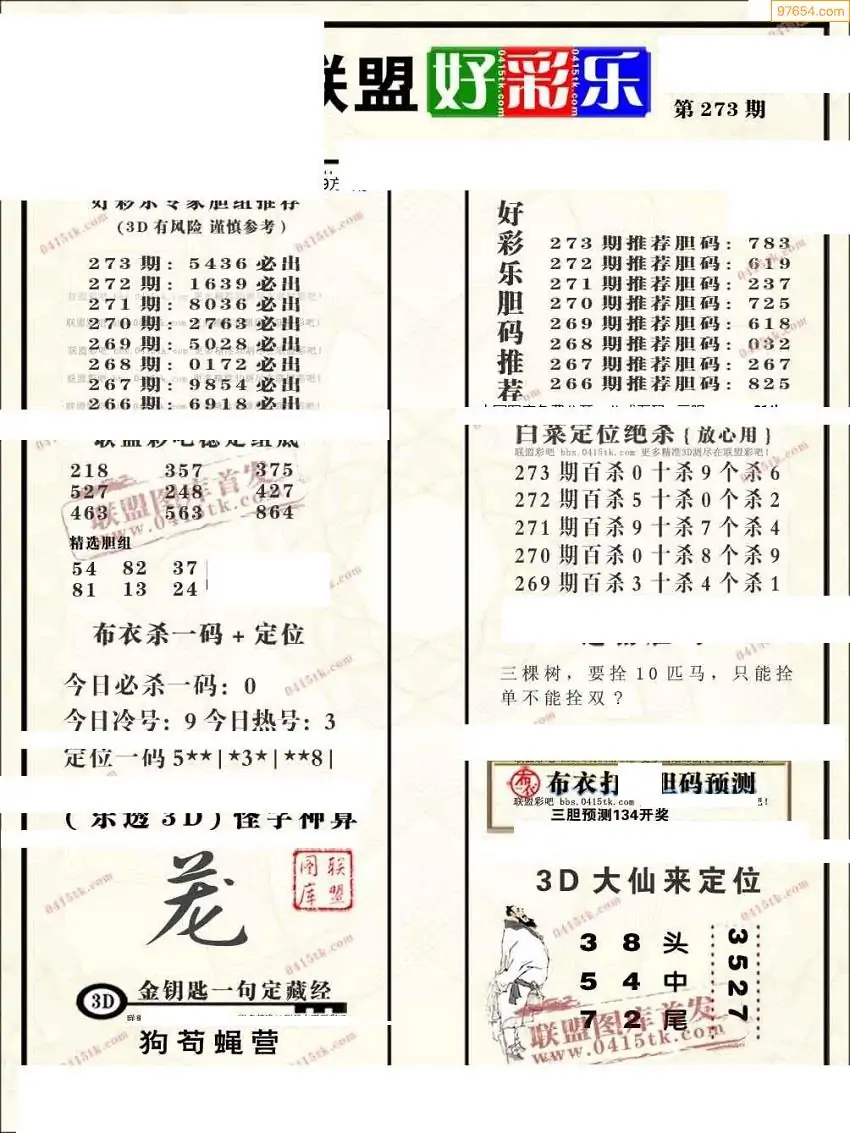 97654.com
联盟 好彩乐
第 273 期
好彩乐专家胆组推荐
(3D 有风险 谨慎参考)
273 期: 5436 必出
272 期: 1639 必出
271 期: 8036 必出
270 期: 2763 必出
269 期: 5028 必出
268 期: 0172 必出
267 期: 9854 必出
266 期: 6918 必出
联盟彩吧稳定组底
218 357 375
527 248 427
463 563 864
联盟图库首发
www.0415tk.com
精选胆组
54 82 37
81 13 24
布衣杀一码 + 定位
今日必杀一码: 0
今日冷号: 9 今日热号: 3
定位一码 5**|*3*|**8|
(乐透 3D) 怪字神算
茏
联盟图库
3D 金钥匙一句定藏经
狗苟蝇营
好彩乐胆码推荐
273 期推荐胆码: 783
272 期推荐胆码: 619
271 期推荐胆码: 237
270 期推荐胆码: 725
269 期推荐胆码: 618
268 期推荐胆码: 032
267 期推荐胆码: 267
266 期推荐胆码: 825
白菜定位绝杀 {放心用}
联盟彩吧 bbs.0415tk.com 更多精准3D测尽在联盟彩吧!
273 期百杀 0 十杀 9 个杀 6
272 期百杀 5 十杀 0 个杀 2
271 期百杀 9 十杀 7 个杀 4
270 期百杀 0 十杀 8 个杀 9
269 期百杀 3 十杀 4 个杀 1
三棵树，要拴 10 匹马，只能拴
单不能拴双？
布衣打 胆码预测
联盟彩吧 bbs.0415tk.com
三胆预测134开奖
3D 大仙来定位
3 8 头
5 4 中
7 2 尾
3527
联盟图库首发
www.0415tk.com